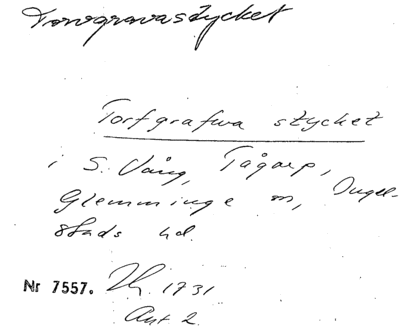 Torvgravastycket
Torfgrafwa stycket
i S. Vång, Tågarp,
Glemminge sn, Ingel-
stads hd.
Nr 7557. Th. 1731
Akt 2